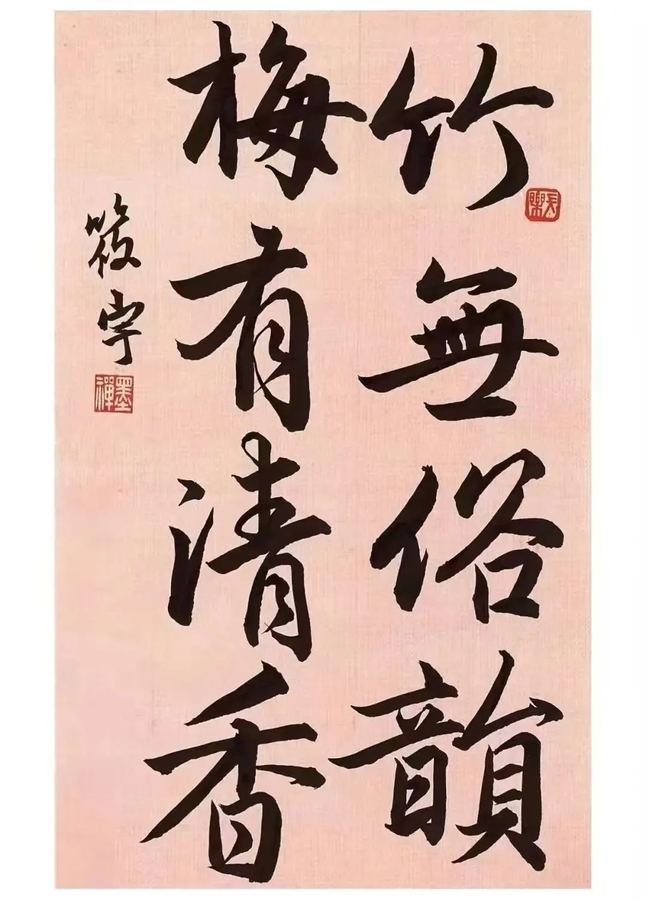 竹無俗韻
梅有清香
筱宇
長樂
墨禪